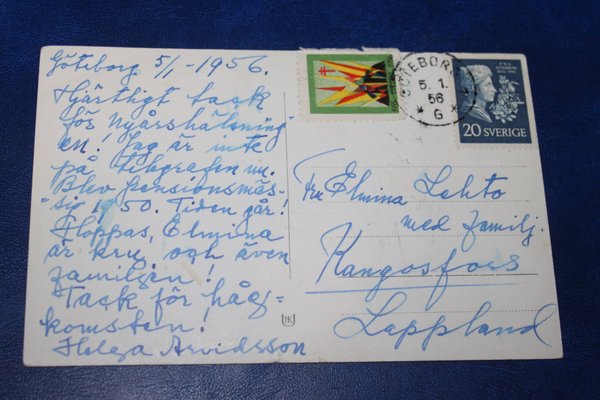 Göteborg 5/1-1956.
Hjärtligt tack
för Nyårshälsning
en! Jag är inte
på telegrafen nu.
Blev pensionsmäs-
sig 1950. Tiden går!
Hoppas, Elmina
är kry och även
familjen!
Tack för håg-
komsten!
Helga Arvidsson
GÖTEBORG
5. 1.
56
* G *
20 SVERIGE
Fru Elmina Lehto
med familj.
Kangosfors
Lappland